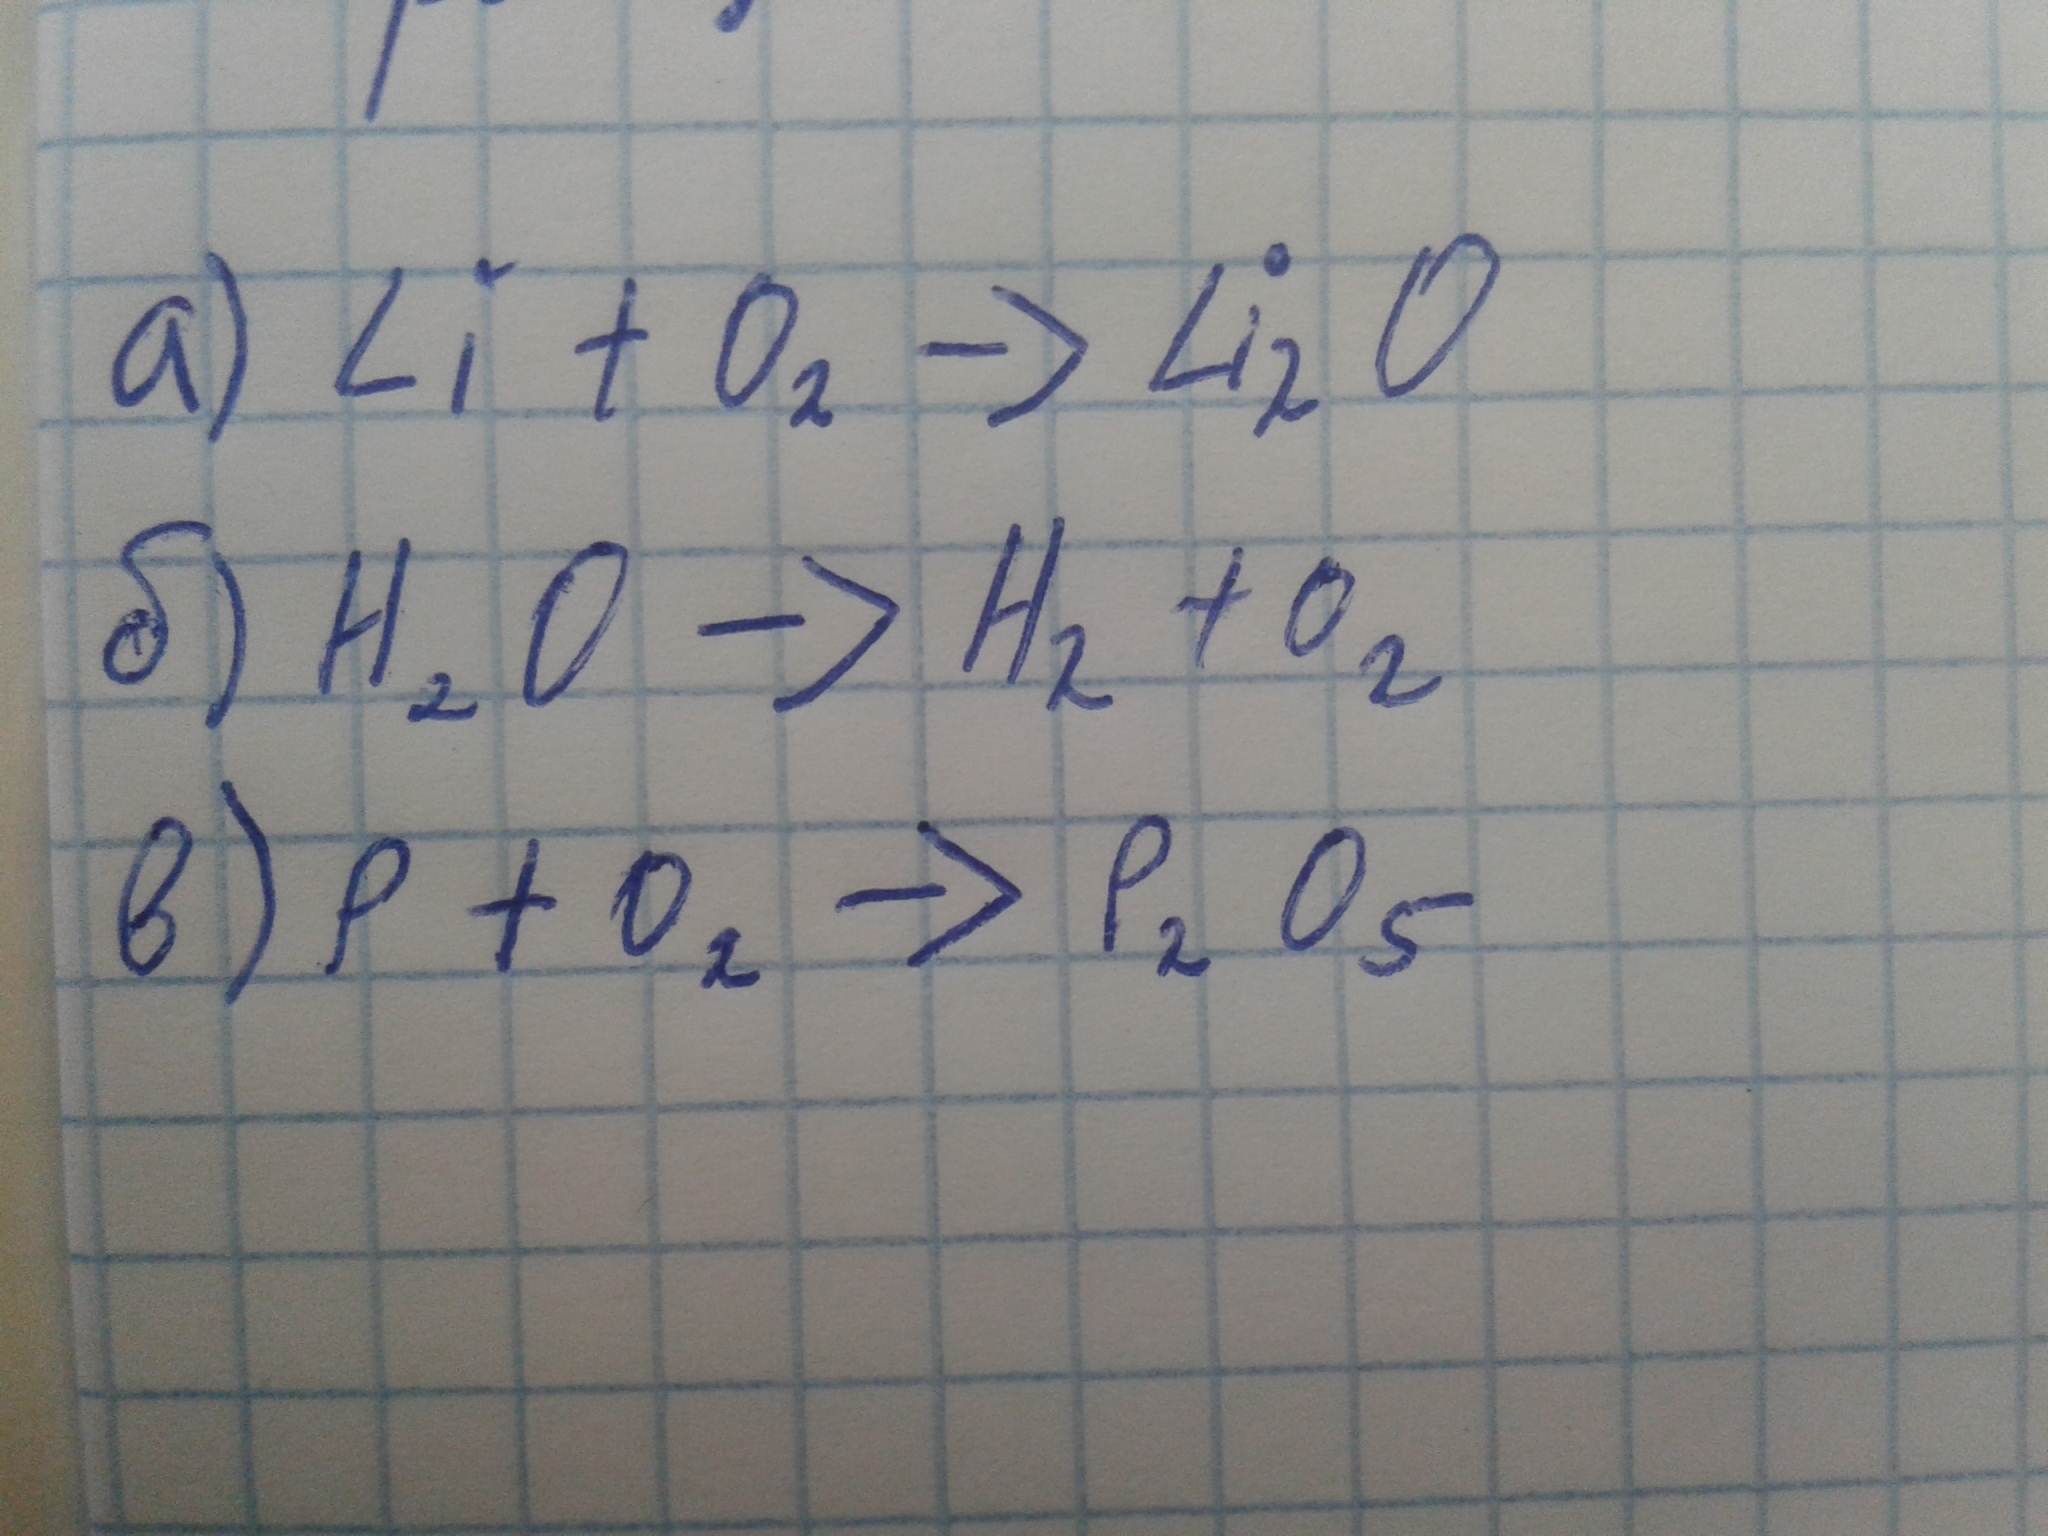 а) Li + O₂ -> Li₂O
б) H₂O -> H₂ + O₂
в) P + O₂ -> P₂O₅